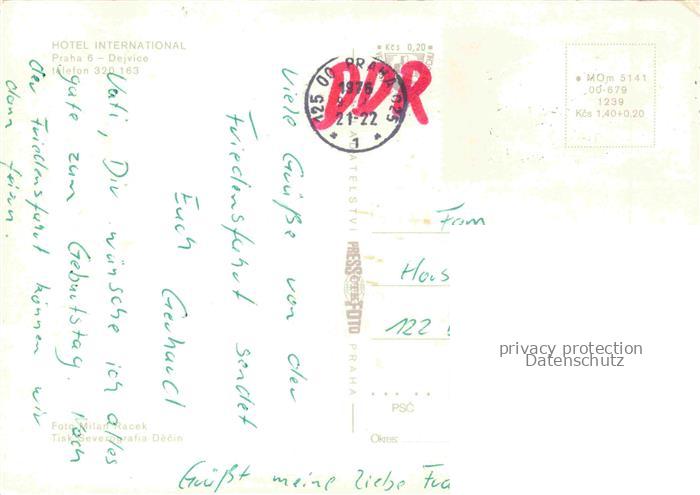 HOTEL INTERNATIONAL
Praha 6 - Dejvice
telefon 320 163
Viele Grüße von der
Friedensfahrt sendet
Euch Gerhard
Vati, Dir wünsche ich alles
gute zum Geburtstag. Nach
der Friedensfahrt können wir
dann feiern.
Grüßt meine liebe
Foto Milan Racek
Tisk Severografia Děčín
Kčs 0,20
DDR
125 00 PRAHA 025
1976
21-22
1
PRESSFOTO
PRAHA
MOm 5141
00-679
1239
Kčs 1,40+0,20
Haus
122
PSČ
Okres:
privacy protection
Datenschutz